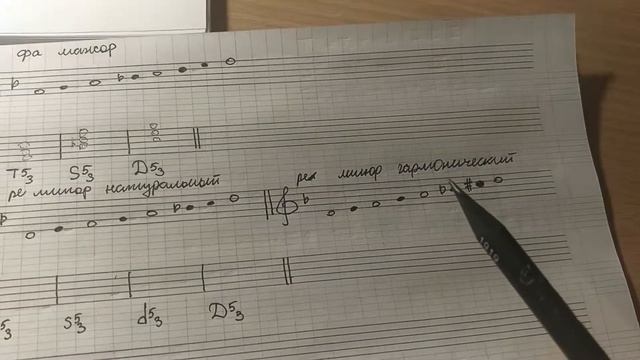 фа мажор
T5/3 S5/3 D5/3
ре минор натуральный
рея минор гармонический
5/3 S5/3 d5/3 D5/3